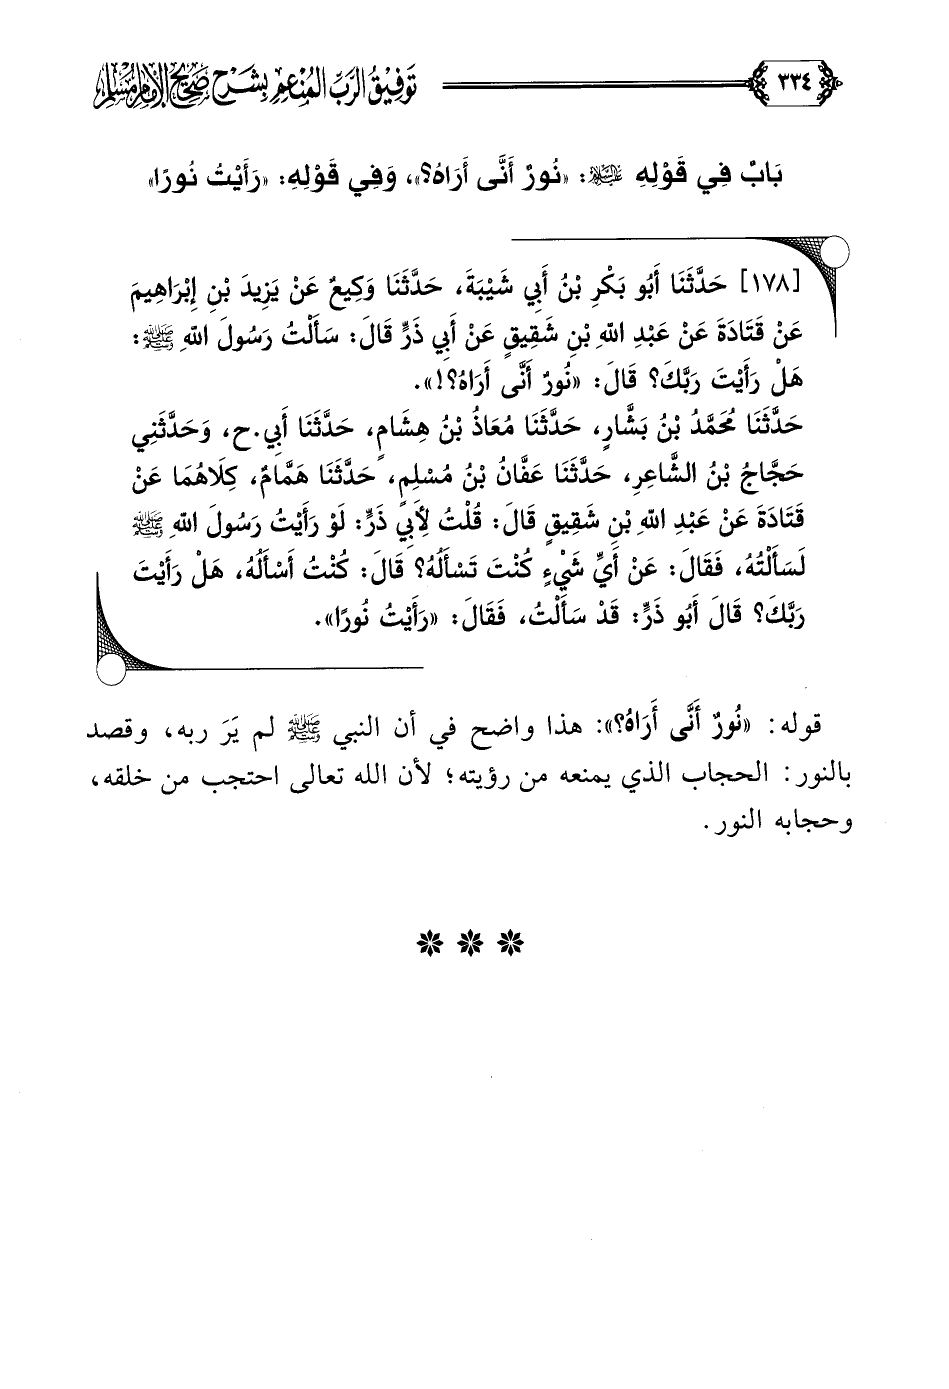 ٣٣٤
توفيق الرب المنعم بشرح صحيح الإمام مسلم
بَابٌ فِي قَوْلِهِ عليه السلام: «نُورٌ أَنَّى أَرَاهُ؟»، وَفِي قَوْلِهِ: «رَأَيْتُ نُورًا»
[١٧٨] حَدَّثَنَا أَبُو بَكْرِ بْنُ أَبِي شَيْبَةَ، حَدَّثَنَا وَكِيعٌ عَنْ يَزِيدَ بْنِ إِبْرَاهِيمَ
عَنْ قَتَادَةَ عَنْ عَبْدِ اللهِ بْنِ شَقِيقٍ عَنْ أَبِي ذَرٍّ قَالَ: سَأَلْتُ رَسُولَ اللهِ ﷺ:
هَلْ رَأَيْتَ رَبَّكَ؟ قَالَ: «نُورٌ أَنَّى أَرَاهُ؟!».
حَدَّثَنَا مُحَمَّدُ بْنُ بَشَّارٍ، حَدَّثَنَا مُعَاذُ بْنُ هِشَامٍ، حَدَّثَنَا أَبِي.ح، وَحَدَّثَنِي
حَجَّاجُ بْنُ الشَّاعِرِ، حَدَّثَنَا عَفَّانُ بْنُ مُسْلِمٍ، حَدَّثَنَا هَمَّامٌ، كِلَاهُمَا عَنْ
قَتَادَةَ عَنْ عَبْدِ اللهِ بْنِ شَقِيقٍ قَالَ: قُلْتُ لِأَبِي ذَرٍّ: لَوْ رَأَيْتُ رَسُولَ اللهِ ﷺ
لَسَأَلْتُهُ، فَقَالَ: عَنْ أَيِّ شَيْءٍ كُنْتَ تَسْأَلُهُ؟ قَالَ: كُنْتُ أَسْأَلُهُ، هَلْ رَأَيْتَ
رَبَّكَ؟ قَالَ أَبُو ذَرٍّ: قَدْ سَأَلْتُ، فَقَالَ: «رَأَيْتُ نُورًا».
قوله: «نُورٌ أَنَّى أَرَاهُ؟»: هذا واضح في أن النبي ﷺ لم يَرَ ربه، وقصد
بالنور: الحجاب الذي يمنعه من رؤيته؛ لأن الله تعالى احتجب من خلقه،
وحجابه النور.